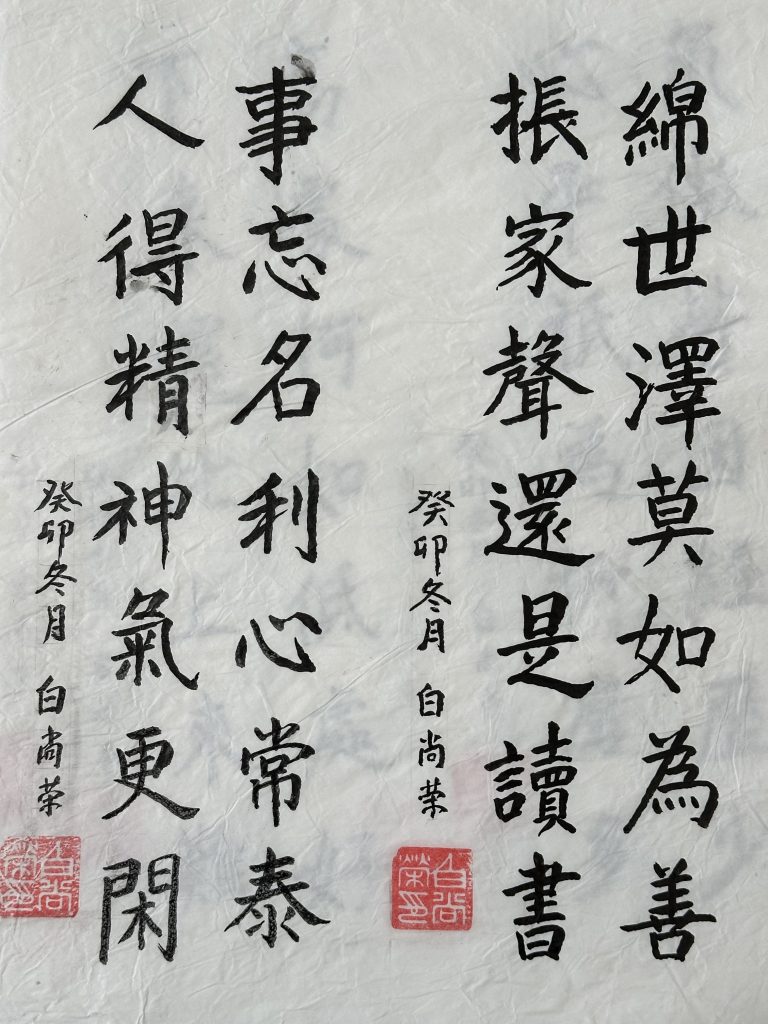 綿世澤莫如為善
振家聲還是讀書
癸卯冬月 白尚荣
白尚荣印
事忘名利心常泰
人得精神氣更閑
癸卯冬月 白尚荣
白尚荣印